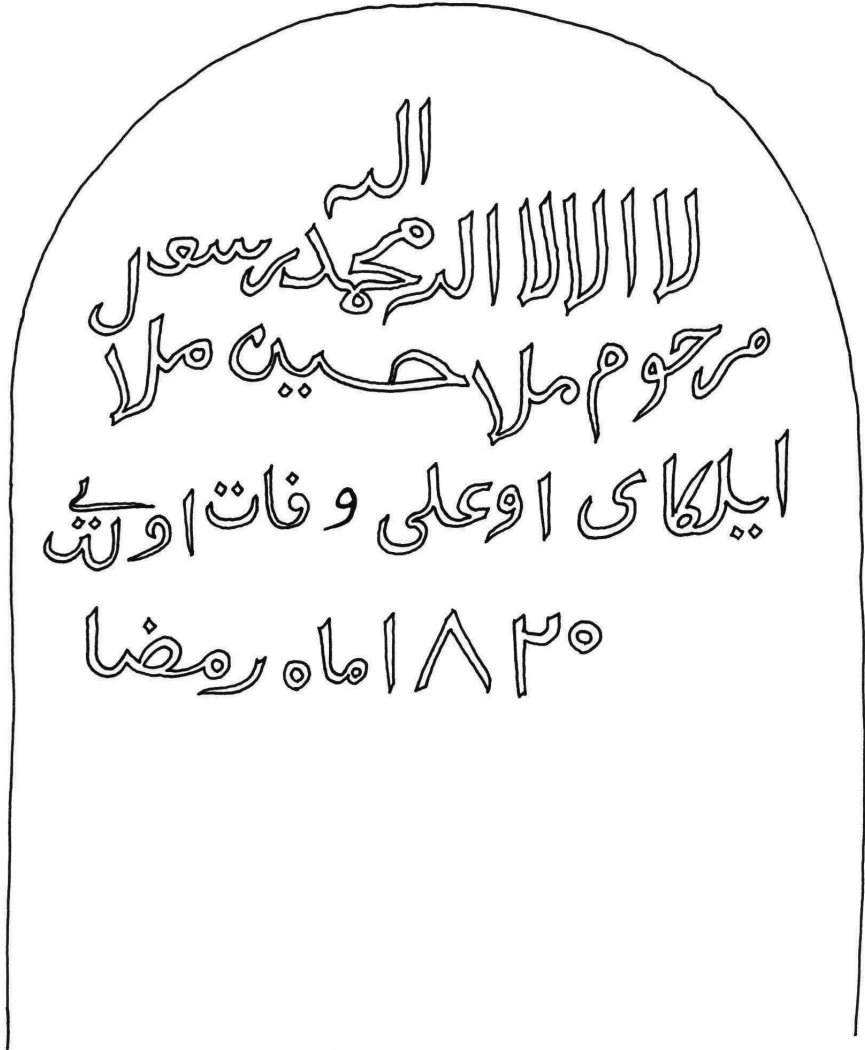 الله
لا الا لا الله محمد رسول
مرحوم ملا حسین ملا
ایلکای اوعلی وفات اولتی
۱۸۲۰ ماه رمضا